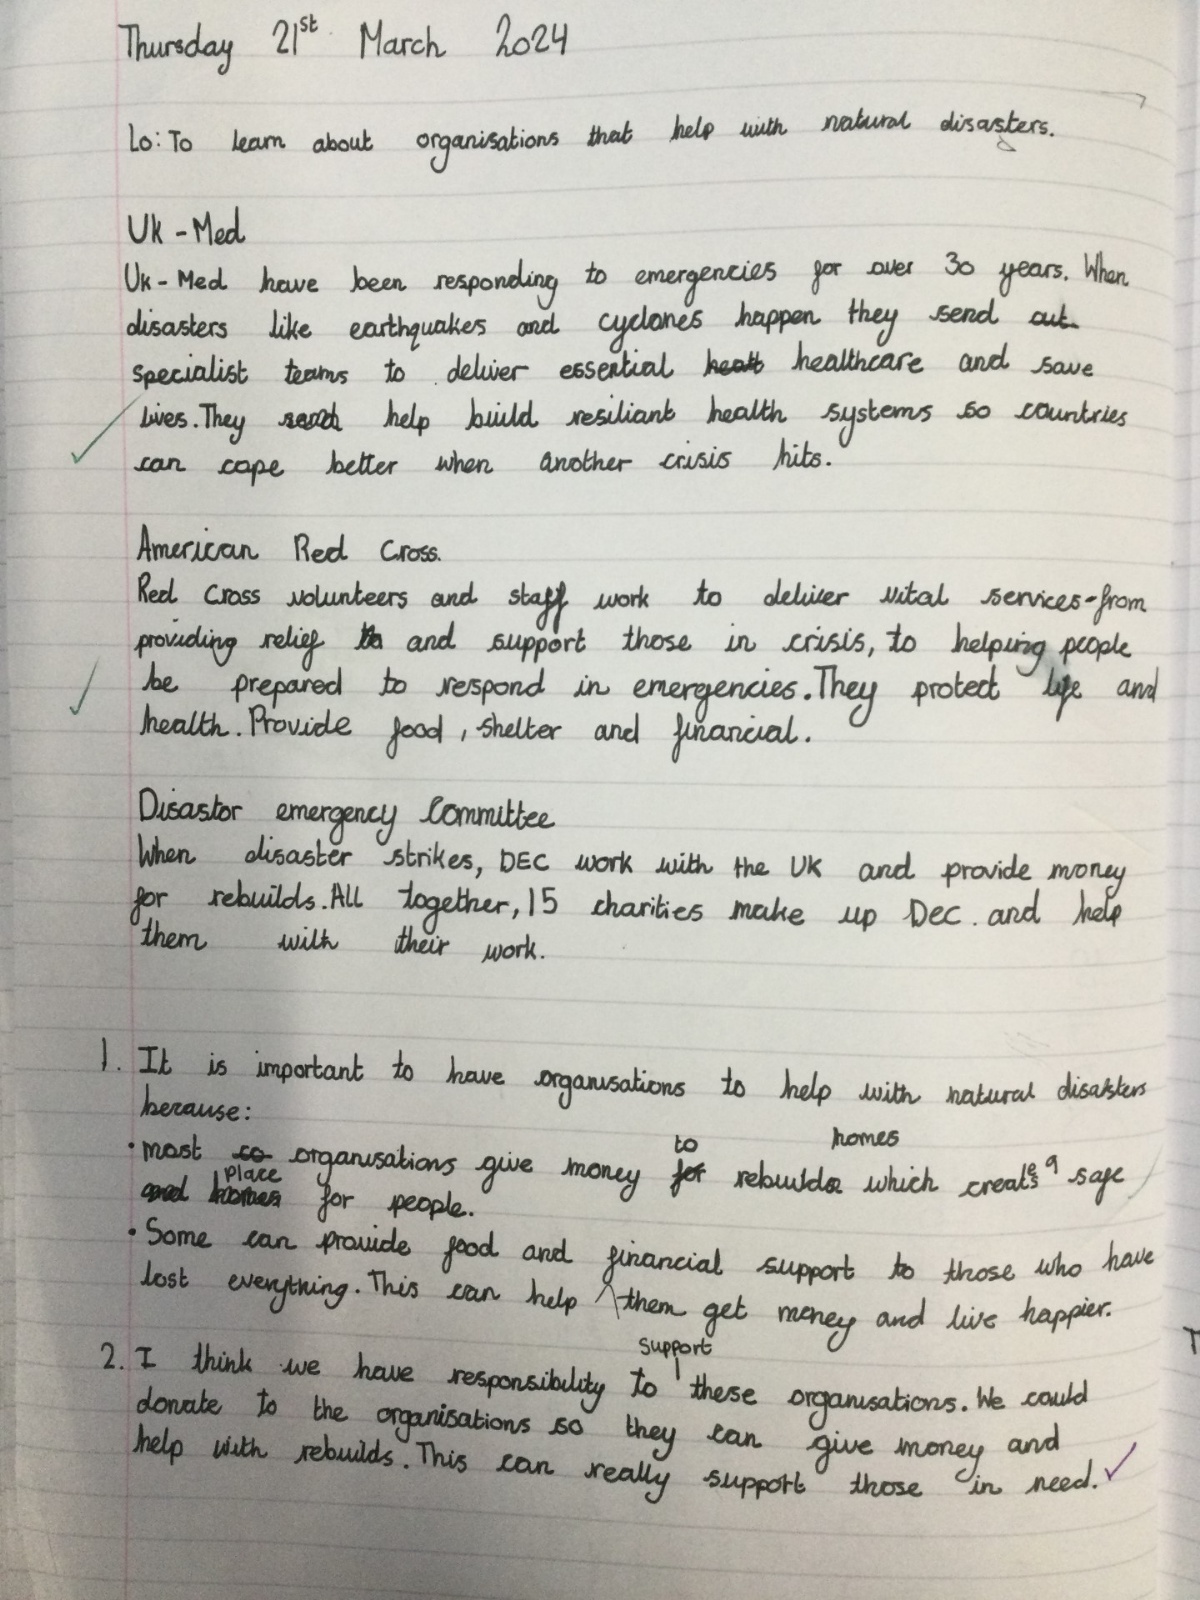 Thursday 21st March 2024
Lo: To learn about organisations that help with natural disasters.
Uk - Med
Uk - Med have been responding to emergencies for over 30 years. When
disasters like earthquakes and cyclones happen they send out
specialist teams to deliver essential healthcare and save
lives. They help build resiliant health systems so countries
can cope better when another crisis hits.
American Red Cross.
Red Cross volunteers and staff work to deliver vital services-from
providing relief and support those in crisis, to helping people
be prepared to respond in emergencies. They protect life and
health. Provide food, shelter and financial.
Disastor emergency Committee
When disaster strikes, DEC work with the UK and provide money
for rebuilds. All together, 15 charities make up Dec. and help
them with their work.
1. It is important to have organisations to help with natural disasters
because:
• most organisations give money to rebuild homes which creates a safe
place for people.
• Some can provide food and financial support to those who have
lost everything. This can help them get money and live happier.
2. I think we have responsibility to support these organisations. We could
donate to the organisations so they can give money and
help with rebuilds. This can really support those in need.